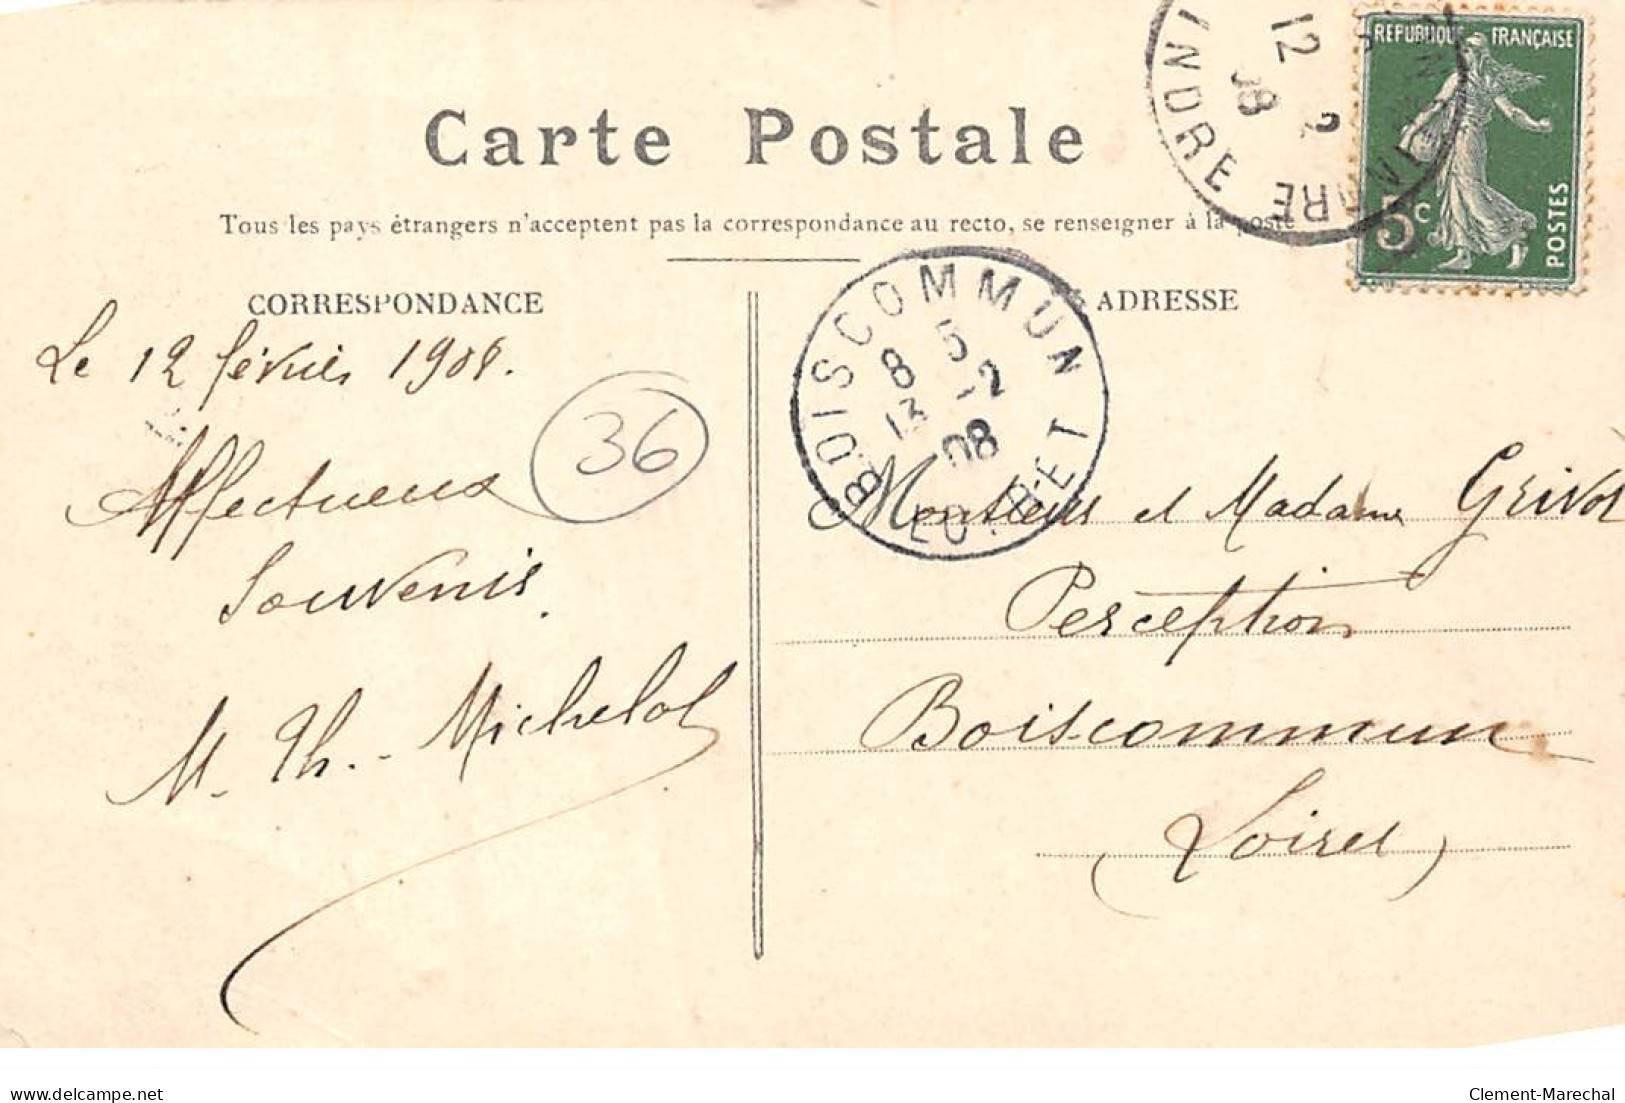 Carte Postale
Tous les pays étrangers n'acceptent pas la correspondance au recto, se renseigner à la poste
CORRESPONDANCE
ADRESSE
REPUBLIQUE FRANÇAISE
5c
POSTES
12
2
08
INDRE
BOISCOMMUN
8 5
13 -2
08
LOIRET
Le 12 février 1908.
36
Affectueux
Souvenirs.
M. Th. Michelot
Monsieur et Madame Grivot
Perception
Boiscommun
(Loiret)
delcampe.net
Clement-Marechal